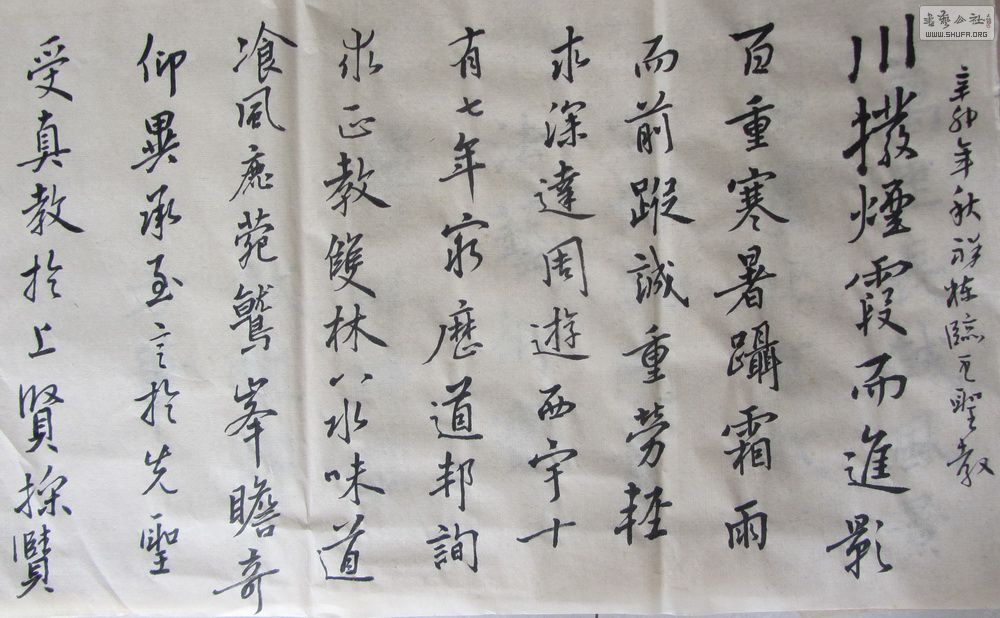 書藝公社
WWW.SHUFA.ORG
辛卯年秋祥栋臨王聖教
川撥煙霞而進影
百重寒暑躡霜雨
而前蹤誠重勞輕
求深達周遊西宇十
有七年窮歷道邦詢
求正教雙林八水味道
飡風鹿菀鷲峯瞻奇
仰異承至言於先聖
受真教於上賢探賾